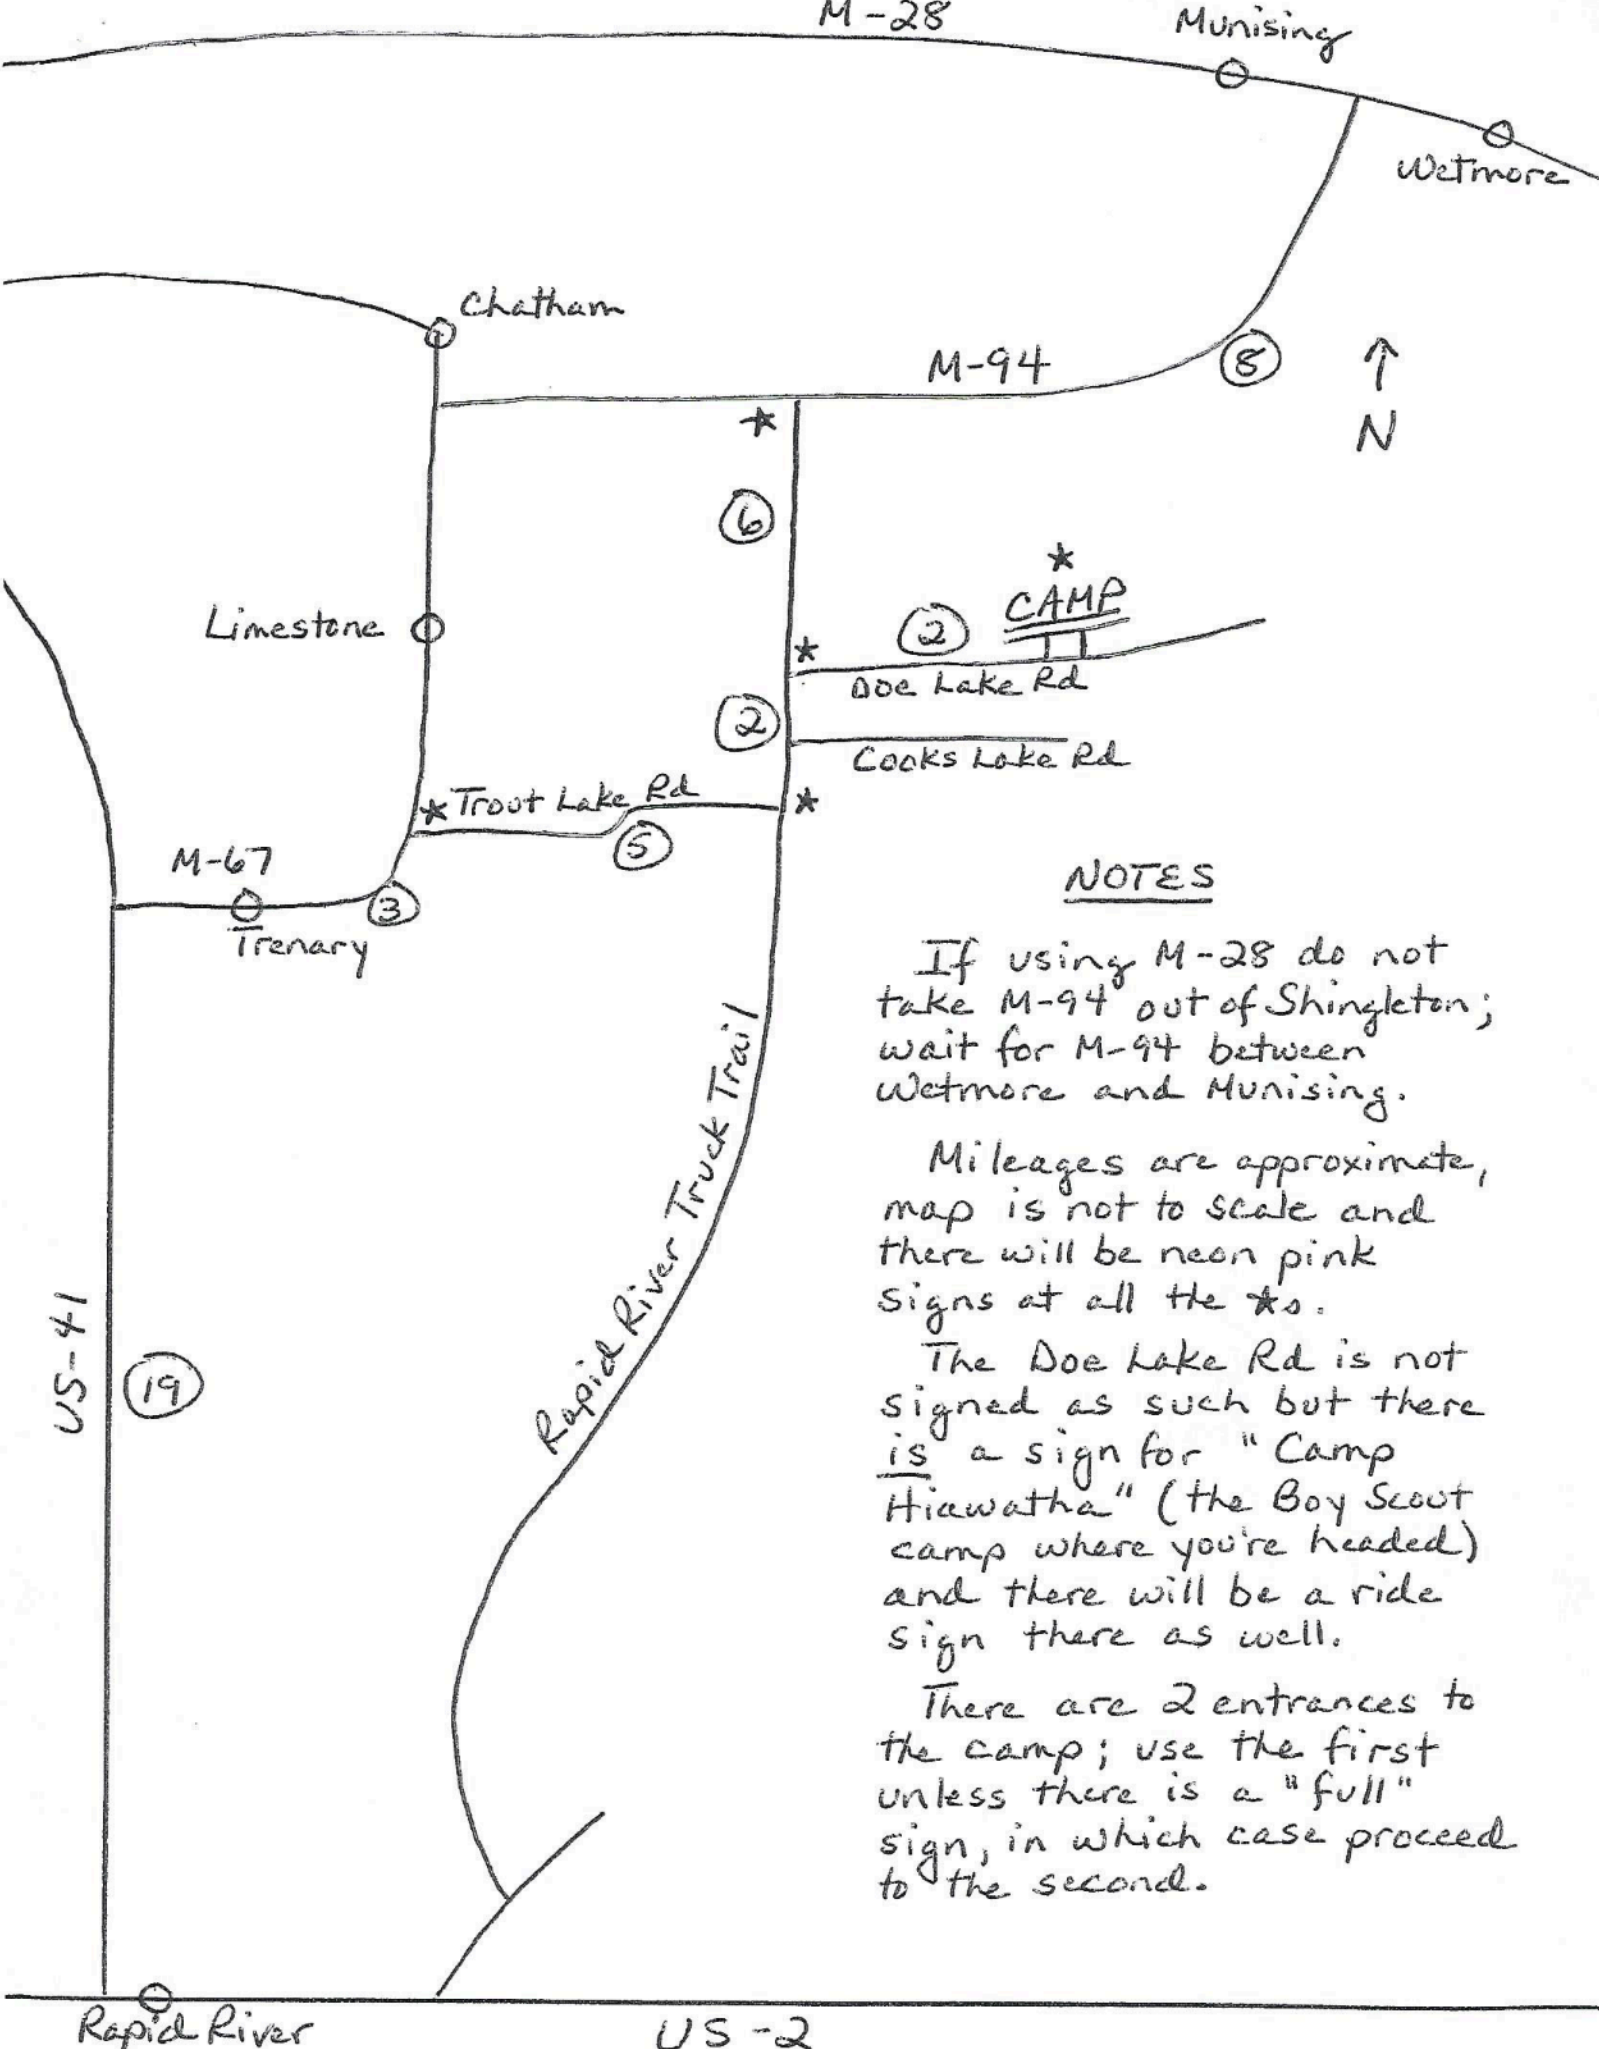 M-28
Munising
Wetmore
Chatham
M-94
8
N
6
★
CAMP
2
Limestone
Doe Lake Rd
2
Cooks Lake Rd
Trout Lake Rd
5
M-67
3
Trenary
NOTES
If using M-28 do not
take M-94 out of Shingleton;
wait for M-94 between
Wetmore and Munising.
Mileages are approximate,
map is not to scale and
there will be neon pink
signs at all the ★s.
The Doe Lake Rd is not
signed as such but there
is a sign for "Camp
Hiawatha" (the Boy Scout
camp where you're headed)
and there will be a ride
sign there as well.
There are 2 entrances to
the camp; use the first
unless there is a "full"
sign, in which case proceed
to the second.
Rapid River Truck Trail
US-41
19
Rapid River
US-2